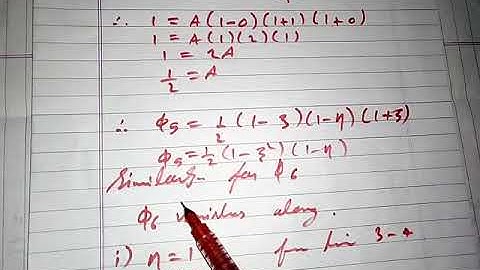 ∴ 1 = A (1-0) (1+1) (1+0)
1 = A (1) (2) (1)
1 = 2A
1/2 = A
∴ Φ5 = 1/2 (1-ξ) (1-η) (1+ξ)
Φ5 = 1/2 (1-ξ²) (1-η)
Similarly for Φ6
Φ6 vanishes along.
i) η = 1 for line 3-4